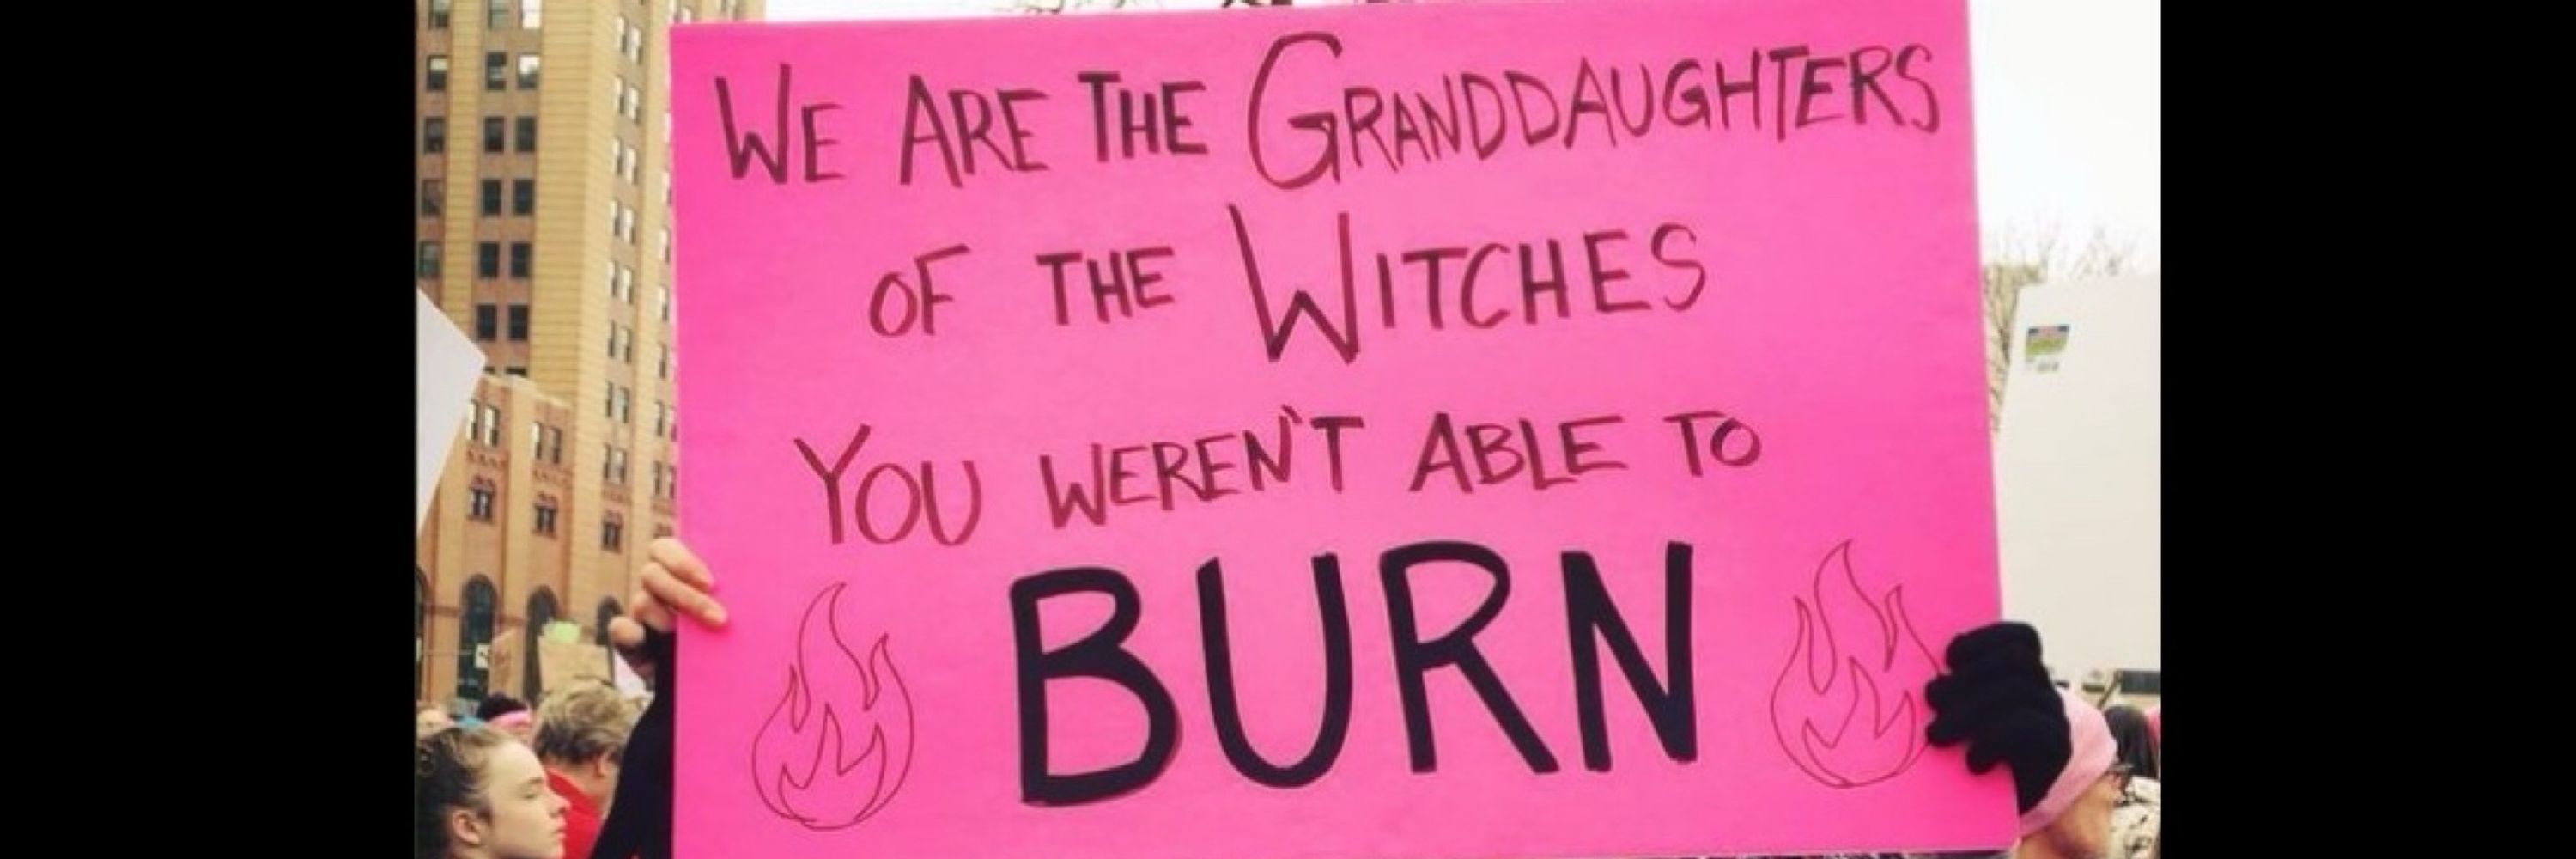 WE ARE THE GRANDDAUGHTERS
OF THE WITCHES
YOU WEREN'T ABLE TO
BURN